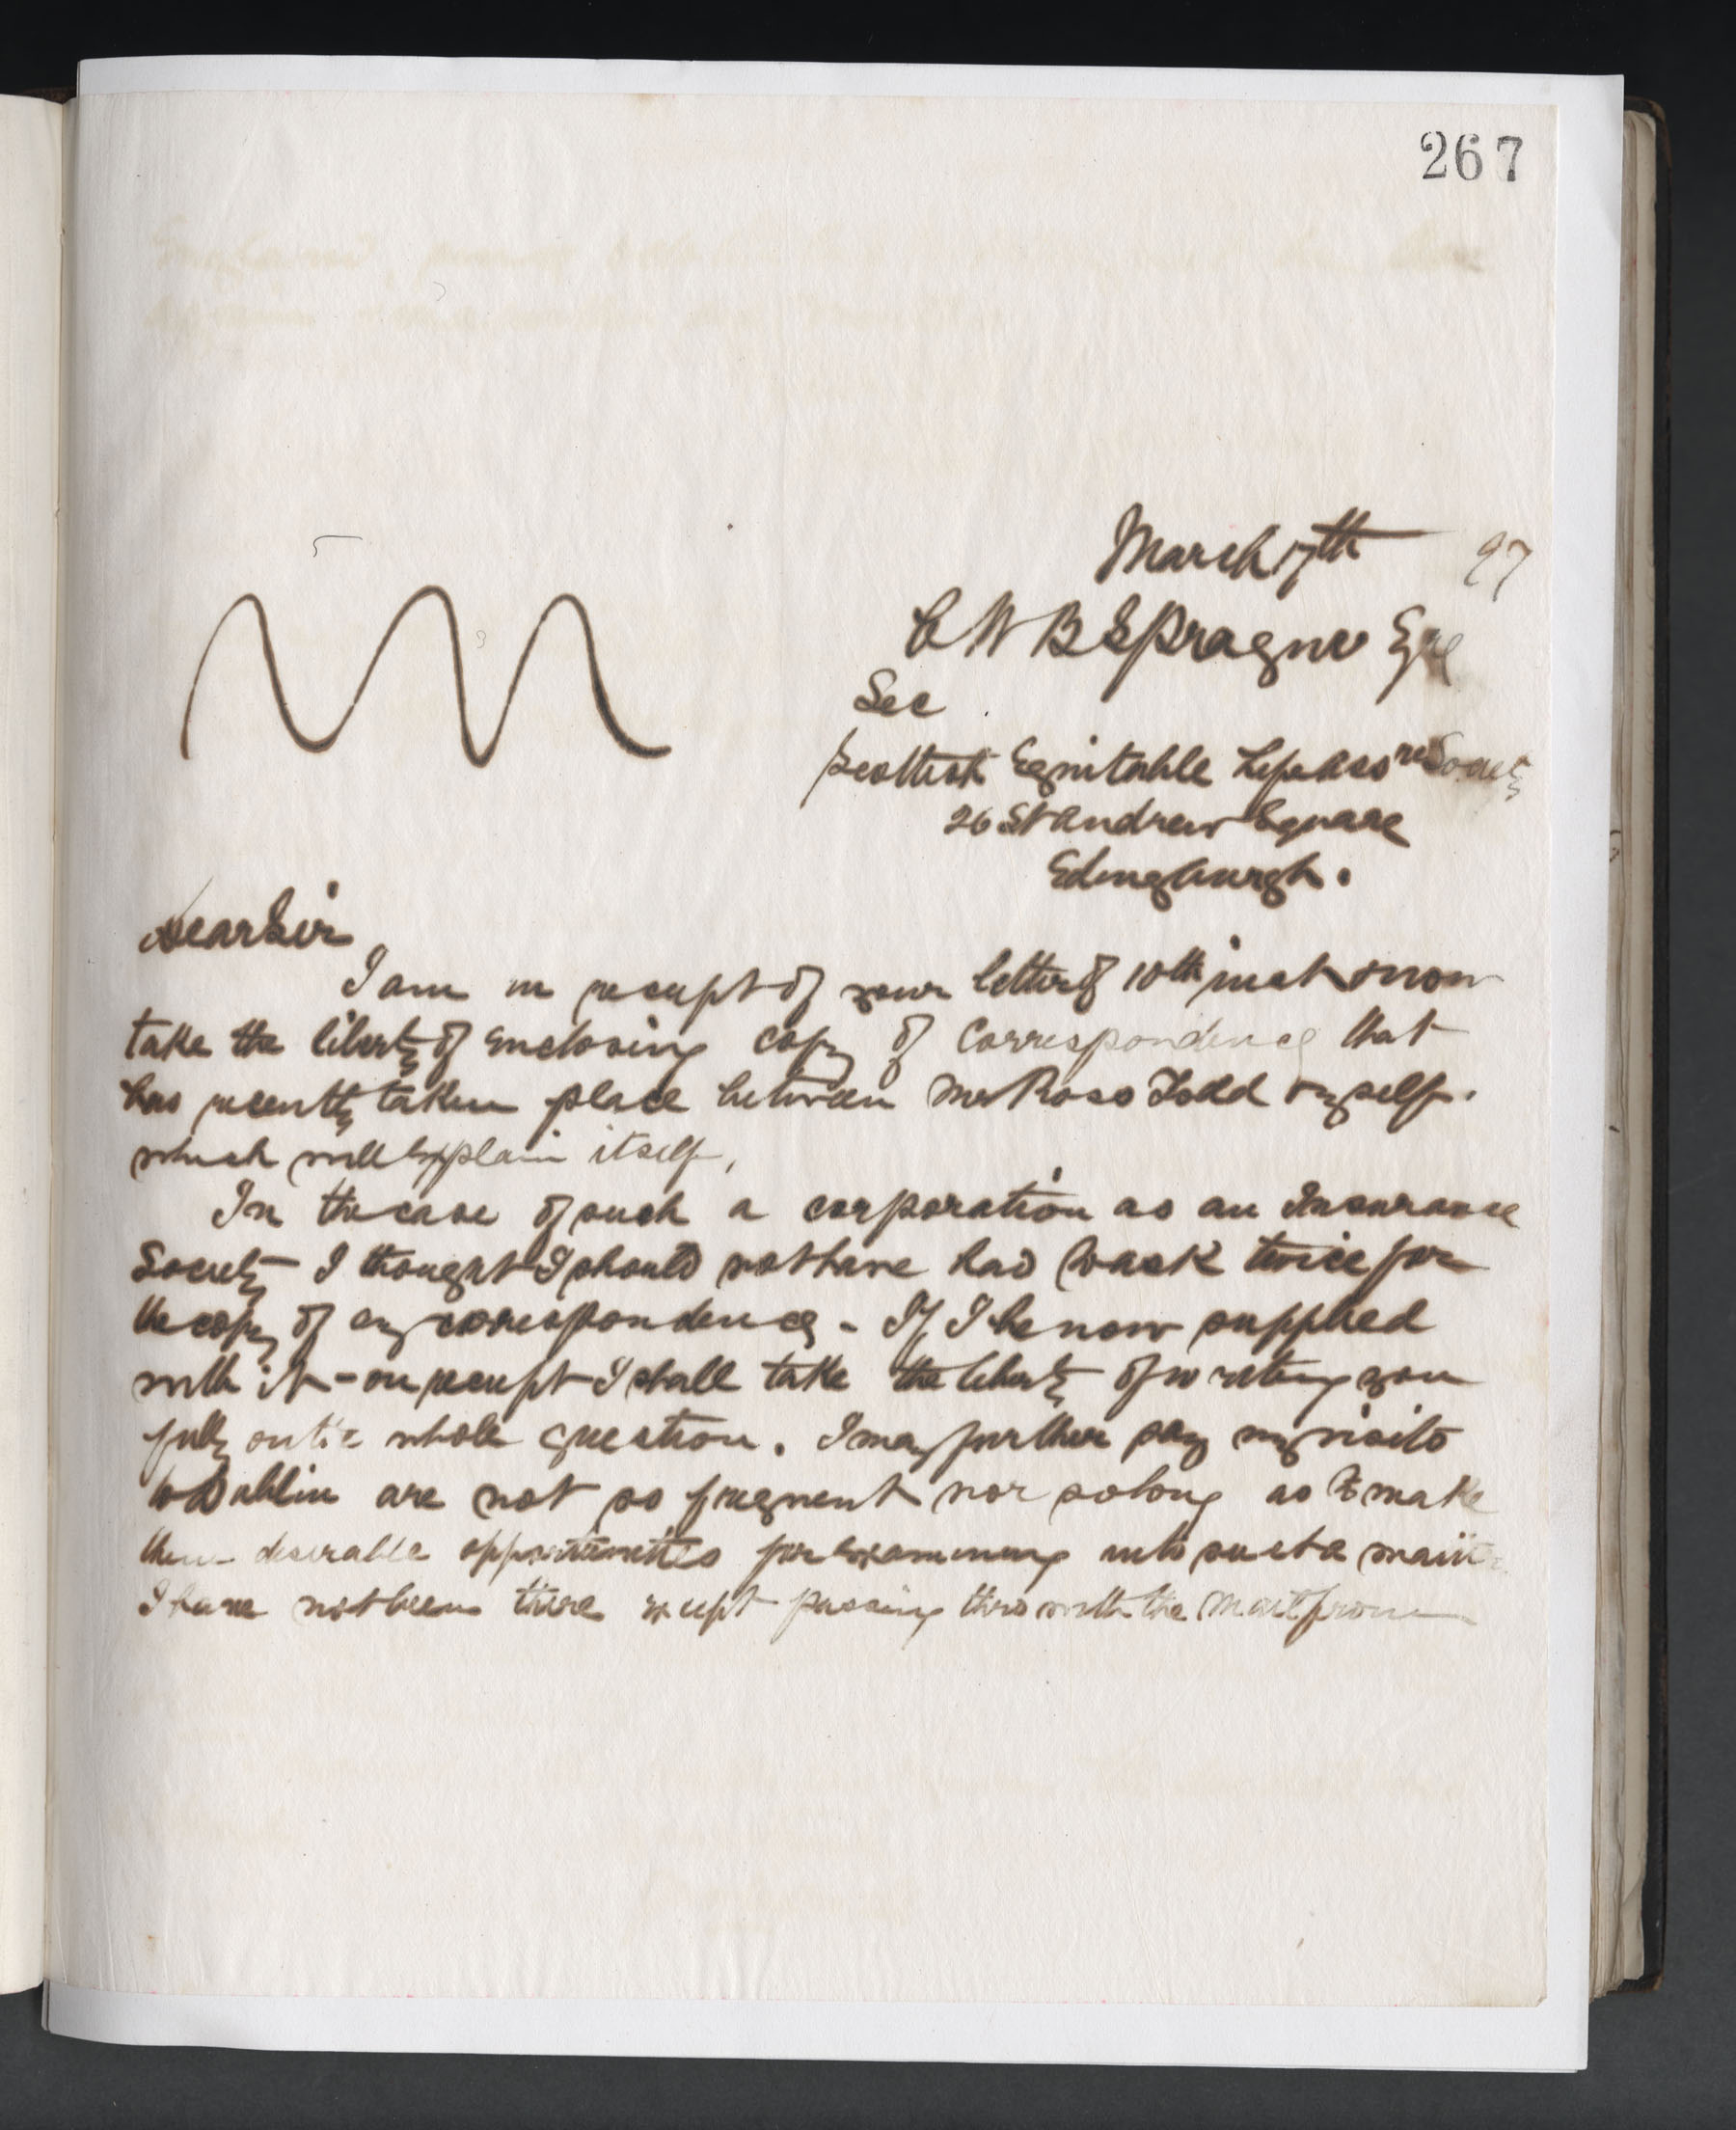 267
March 17th 97
C W B Sprague Esqre
Sec
Scottish Equitable Life Assnce Society
26 St Andrew Square
Edingburgh.
Dear Sir
I am in receipt of your letter of 10th inst & now
take the liberty of enclosing copy of Correspondence that
has recently taken place between Mr Ross Todd & myself.
which will explain itself,
In the case of such a corporation as an Insurance
Society I thought I should not have had to ask twice for
the copy of my correspondence - If I be now supplied
with it - on receipt I shall take the liberty of writing you
fully on the whole question. I may further say my visits
to Dublin are not so frequent nor so long as to make
them desirable opportunities for examining into such a matter
I have not been there except passing thro with the Mail from